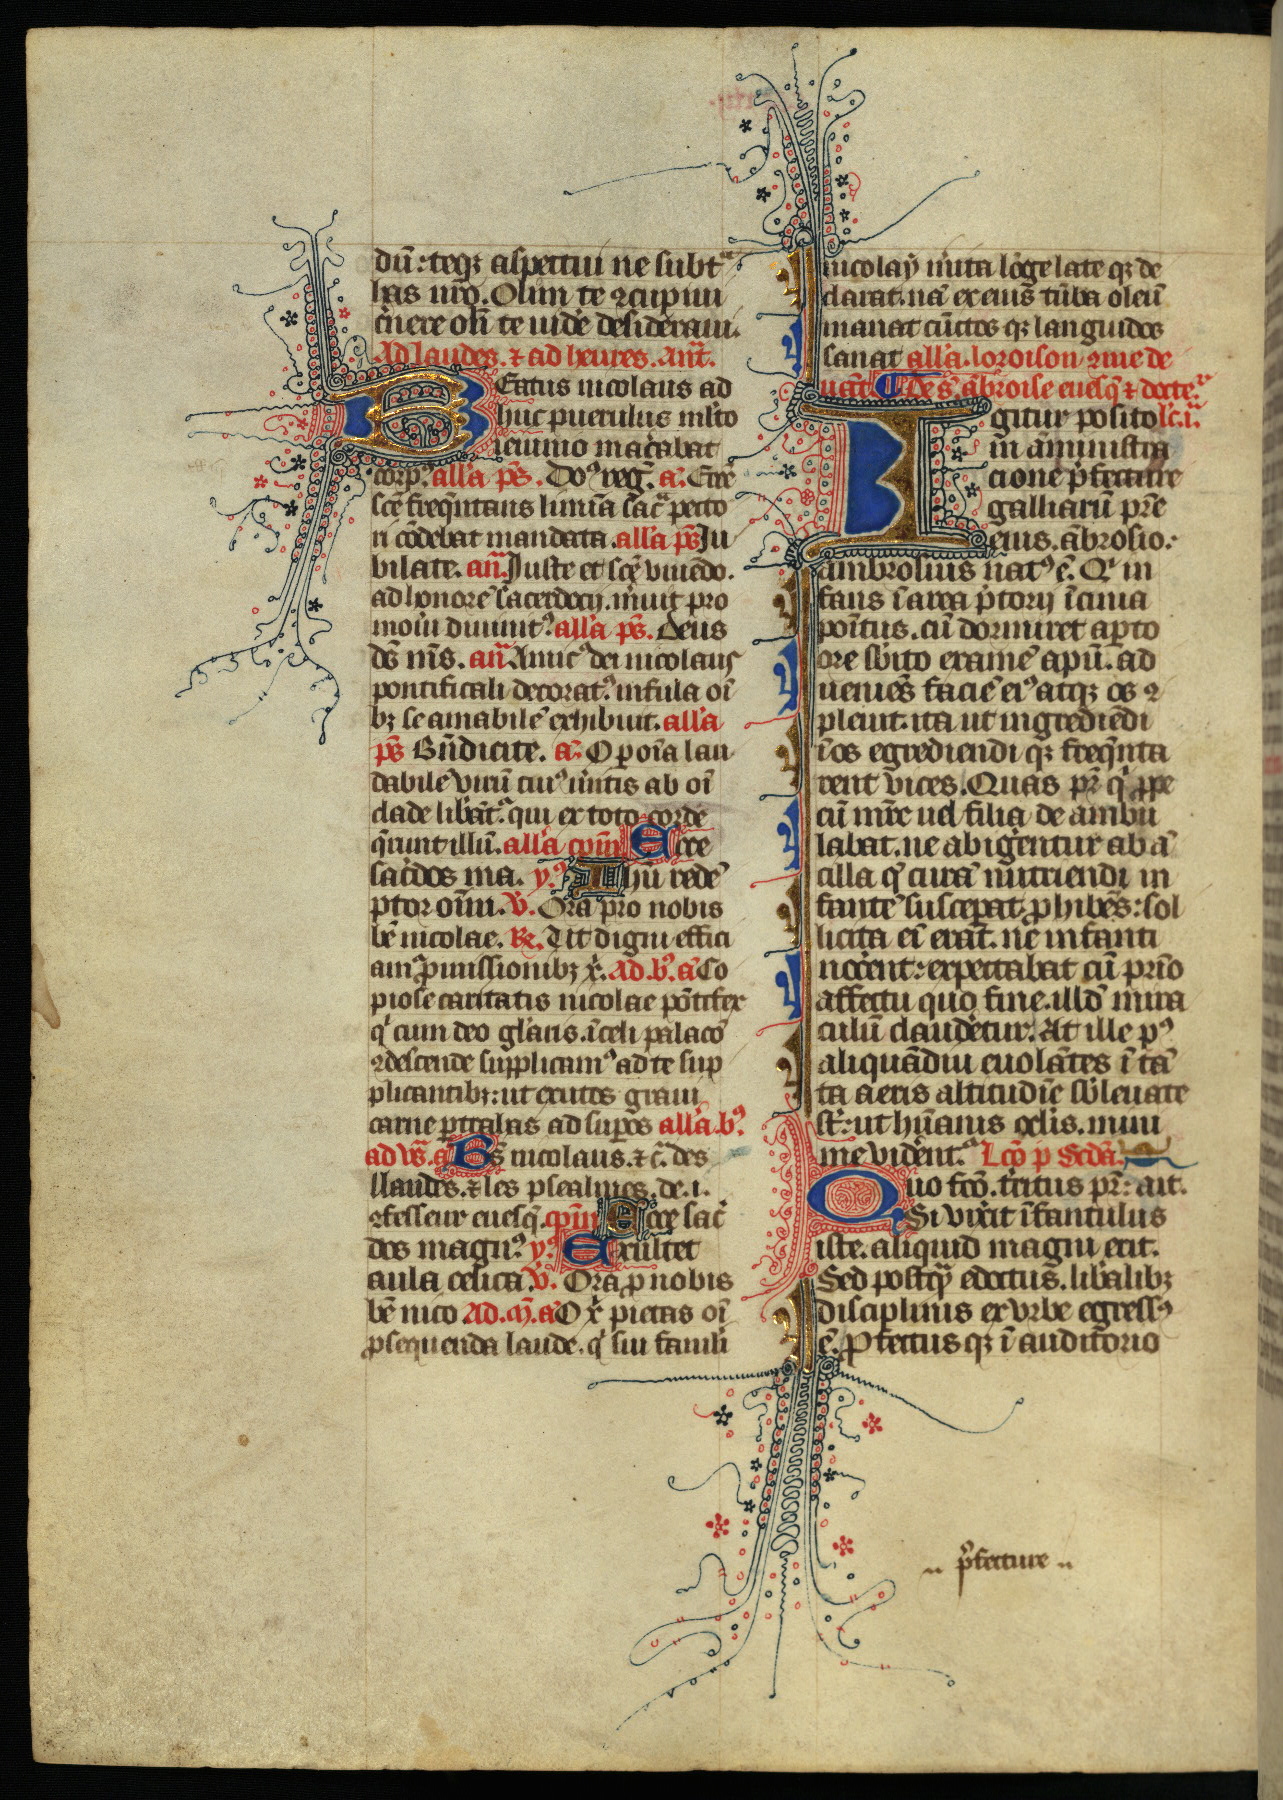 dū: teqꝫ aspectui ne subt͛a
has nr̄o. Olim te ꝯcupiui
cernere olī te uidē desideraui.
Ad laudes. ⁊ ad heures. Ant̄.
Beatus nicolaus ad
huc puerulus ml̄to
ieiunio macerabat
corpꝰ. all'a ps̄. Dn̄ꝰ reḡ. a͛. Ecc̄e
sc̄e freq̄ntans limīa sac͛ pecto
ri cōdebat mandata. all'a ps̄ Ju
bilate. an̄. Juste et sc̄e viuēdo.
ad honorē sacerdocij. inuit pro
moūi diuinitꝰ all'a ps̄. Deus
ds̄ ms̄. an̄ Amicꝰ dei nicolaus
pontificali decoratꝰ infula oī
bꝫ se amabilē exhibuit. all'a
ps̄ Bn̄dicite. a͛. O ꝑ oīa lau
dabilē virū cuiꝰ m̄itis ab oī
clade lib̄ant͛. qui ex toto corde
q̄runt illū. all'a cpm̄ Ecce
sac̄dos ma. y.ꝰ Jhū redē
ptor oīm. v̄. Ora pro nobis
bē nicolae. R. Ut digni effici
amꝰ ꝓmissionibꝫ x̄. Ad b.ꝰ a͛ Co
piose caritatis nicolae pōtifex
qⁱ cum deo gl̄aris. ī celi palacō
ꝯdescende supplicamꝰ ad te sup
plicantibꝫ: ut exutos graui
carne ptrahas ad supos all'a. b.ꝰ
ad vs̄. a͛ Bs̄ nicolaus. ⁊ c̄. des
llaudes. ⁊ les psealmes. de .i.
ꝯfesseur euesq̄. cpm̄ Ecce sac̄
dos magnꝰ. y.ꝰ Exultet
aula celica. v̄. Ora ꝑ nobis
bē nico. Ad. m̄. a͛ O x̄ pietas oī
ꝓsequenda laude. qⁱ sui famli
nicolaÿ m̄ita lōge late qꝫ de
clarat. nā ex eius tūba oleū
manat cūctos qꝫ languidos
sanat all'a. loroison ꝯme de
uāt. De s̄. ābroise euesq̄ ⁊ docte͛
Igitur posito lc̄. i.ᵃ
in āministra
cione p̄fecture
galliarū pr̄e
eius. ābrosio.
ambrosius natꝰ ē. Qⁱ in
fans ī area p̄torij ī cuna
poītus. cū dormiret apto
ore sbīto examē apū. ad
ueniēs faciē eiꝰ atqꝫ os ꝯ
pleuit. ita ut ingrediēdi
īos egrediendi qꝫ freq̄nta
rent vices. Quas pr̄ qⁱ ꝓpe
cū mr̄e uel filia de ambu
labat. ne abigerentur ab ā
cilla q̄ curā nutriendi in
fantē susceperat ꝓhibēs: sol
licita ei erat. ne infanti
nocēnt: expectabat cū pr̄io
affectu quo fine. illd' mira
culū clauderetur. At ille pꝰ
aliquādiu euolātes ī tā
ta aeris altitudīe sb̄leuate
st̄: ut hūanis oclis. mini
me vident͛. Lc̄o ꝑ Sed'a.
Quo fc̄o. t̄ritus pr̄: ait.
Si vixit īfantulus
iste. aliquid magni erit.
Sed postq̄ȝ edoctus. lib̄alibꝫ
disciplinis ex vrbe egressꝰ
ē. Pfectus qꝫ ī auditorio
p̄fecture